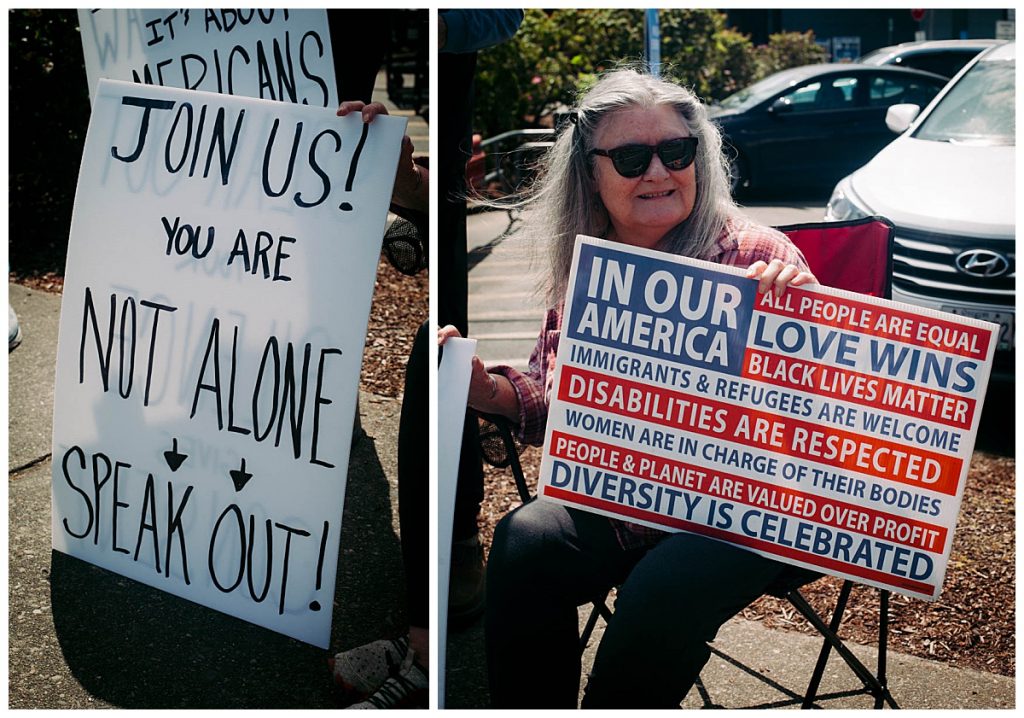 IT'S ABOUT
AMERICANS
JOIN US!
YOU ARE
NOT ALONE
SPEAK OUT!
IN OUR
AMERICA
ALL PEOPLE ARE EQUAL
LOVE WINS
BLACK LIVES MATTER
IMMIGRANTS & REFUGEES ARE WELCOME
DISABILITIES ARE RESPECTED
WOMEN ARE IN CHARGE OF THEIR BODIES
PEOPLE & PLANET ARE VALUED OVER PROFIT
DIVERSITY IS CELEBRATED